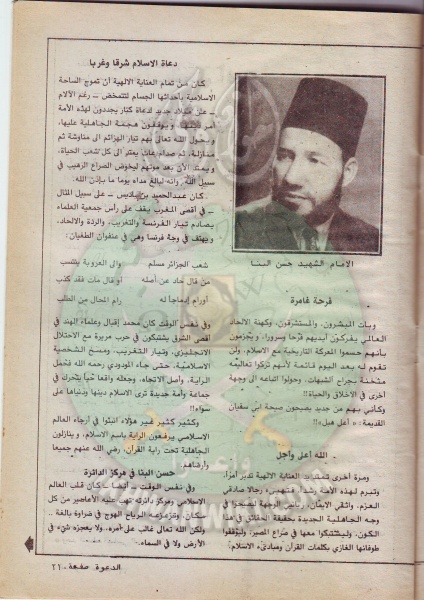 دعاة الاسلام شرقا وغربا
كان من تمام العناية الالهية أن تموج الساحة
الاسلامية بأحداثها الجسام لتتمخض ـ رغم الآلام
ـ عن ميلاد جديد لدعاة كبار يجددون لهذه الأمة
أمر دينها ويوقفون هجمة الجاهلية عليها،
ويحول الله تعالى بهم تيار الهزائم الى مناوشة ثم
منازلة، ثم صدام عات يمتد الى كل شعب الحياة،
ويمتد الآن بعد موتهم ليخوض الصراع الرهيب في
سبيل الله. وانه لبالغ مداه يوما ما بإذن الله.
كان عبدالحميد بن باديس ـ على سبيل المثال
ـ في أقصى المغرب يقف على رأس جمعية العلماء
يصادم تيار الفرنسة والتغريب، والردة والالحاد،
ويهتف في وجه فرنسا وهي في عنفوان الطغيان:
شعب الجزائر مسلم والى العروبة ينتسب
من قال حاد عن أصله أو قال مات فقد كذب
أو رام إدماجا له رام المحال من الطلب
وفي نفس الوقت كان محمد إقبال وعلماء الهند في
أقصى الشرق يشتبكون في حرب مريرة مع الاحتلال
الانجليزي، وتيار التغريب، ومسخ الشخصية
الاسلامية، حتى جاء المودودي رحمه الله فحمل
الراية، وأصل الاتجاه، وجعله واقعا حيا يتحرك في
جماعة وأمة جديدة ترى الاسلام دينها ودنياها على
سواء!!
وكثير كثير غير هؤلاء انبثوا في أرجاء العالم
الاسلامي يرفعون الراية باسم الاسلام، وينازلون
الجاهلية تحت راية القرآن، رضي الله عنهم جميعا
وأرضاهم.
حسن البنا في مركز الدائرة
وفي نفس الوقت ـ أيضا ـ كان قلب العالم
الاسلامي ومركز دائرته تهب عليه الأعاصير من كل
مكان، وتزعزعه الرياح الهوج في ضراوة بالغة ..
ولكن الله تعالى غالب على أمره، ولا يعجزه شيء في
الأرض ولا في السماء.
الامام الشهيد حسن البنا
فرحة غامرة
وبات المبشرون، والمستشرقون، وكهنة الالحاد
العالمي يفركون أيديهم فرحا وسرورا، ويجزمون
بأنهم حسموا المعركة التاريخية مع الاسلام، ولن
تقوم له بعد اليوم قائمة لأنهم تركوا تعاليمه
مثخنة بجراح الشبهات، وحولوا اتباعه الى وجهة
أخرى في الاخلاق والحياة!!
وكأني بهم من جديد يصيحون صيحة ابي سفيان
القديمة: « أعل هبل»!!
الله أعلى وأجل
ومرة أخرى تمتد يد العناية الالهية تدبر أمرا،
وتبرم لهذه الأمة رجالا صادقي
العزم، واثقي الايمان، رباني الوجهة ليصيحوا في
وجه الجاهلية الجديدة بحقيقة الحقائق في هذا
الكون، وليشتبكوا معها في صراع المصير، وليوقفوا
طوفانها الغازي بكلمات القرآن ومبادىء الاسلام.
الدعوة صفحة ـ ٢١